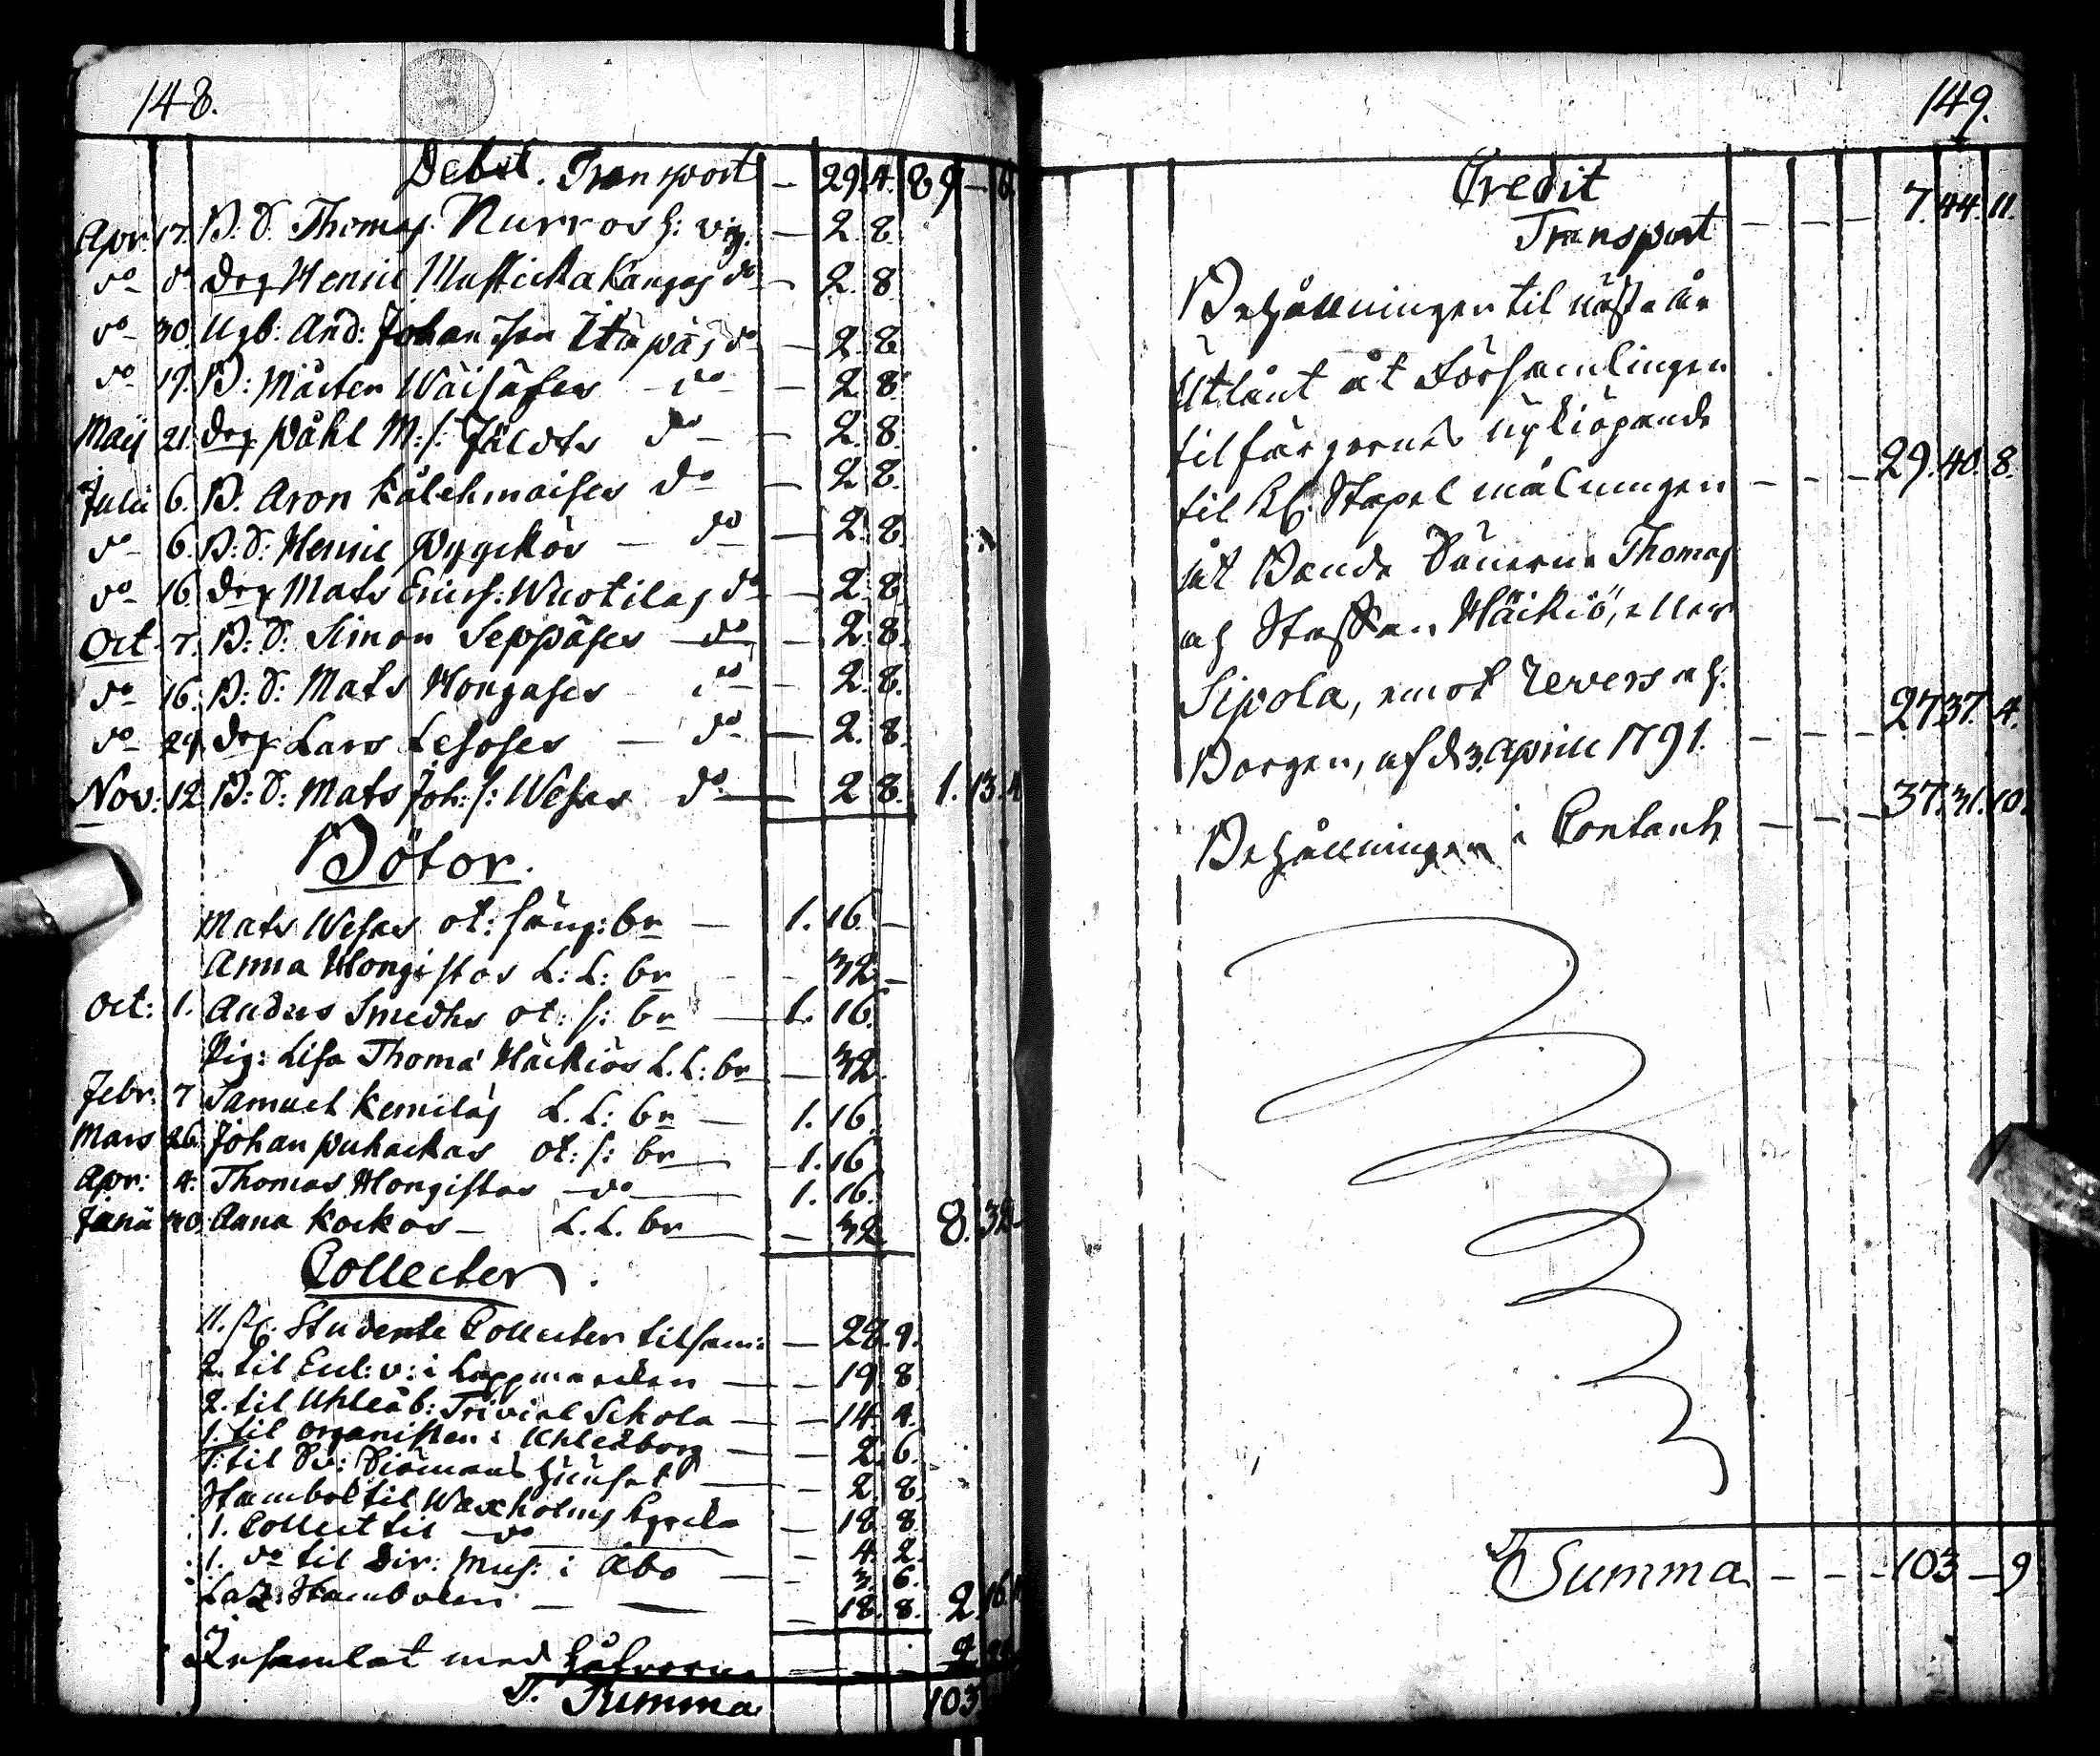 148.
Debet. Transport — 29. 4. 89 — 6
Apr: 17. B. D. Thomas Nurros h: vig. — 2. 8.
do do drg Henric Mustickakangas do — 2. 8.
do 30. Ugb: And: Johansson Itäpäs do — 2. 8.
do 19. B: Mårten Wäisäses — do — 2. 8.
Maij 21. drg Påhl M: s: Jäldts do — 2. 8.
Julii 6. B. Aron Kälchmaises do — 2 8.
do 6. B: D: Henric Pyyckös — do — 2. 8.
do 16. drg Mats Erics: Wuotilas do — 2. 8.
Oct. 7. B: D: Simon Seppäses — do — 2. 8.
do 16. B: D: Mats Hongases do — 2. 8.
do 29. drg Lars Lesoses — do — 2. 8.
Nov: 12 B: D: Mats Joh: s: Wesas do — 2 8. 1. 13. 4
Böter.
Mats Wesas ot: säng: br — 1. 16. —
Anna Hongistos L: L: br — 32 —
Oct: 1. Anders Smedhs ot: s: br — 1. 16.
Pig: Lisa Thoma Häckiös L. L: br — 32.
Febr: 7 Samuel Kemiläs L. L: br — 1. 16.
Mars 26. Johan Puhackas ot: s: br — 1. 16
Apr: 4. Thomas Hongistos — do — 1. 16.
30. Anna Kockos — L. L. br — 32 8. 32 —
Collecter.
11. st: Studente Collecter tilsam: — 28. 9.
2. til Eccl: v: i Lappmarcken — 19 8
2. til Uhleåb: Trivial Schola — 14. 4.
1. til Organisten i Uhleåborg — 2. 6.
1. til Sv: Siömans huuset — 2. 8.
Stambok til Waxholms Kyrcka — 18 8
1. Collect til do — 4. 2.
1. do til Dir: Mus: i Åbo — 3. 6.
Laz: Stambolen — 18. 8. 2. 16. 1
Insamlat med håfvorne — 2
S. Summa 103
149.
Credit
Transport — — — 7. 44. 11.
Behållningen til nästa år
Utlånt åt Församlingen
til färgernes upkiöpande
til Kl: Stapel målningen — — — 29. 40. 8.
åt Bonde Sönerne Thomas
och Staffan Häikiö, eller
Sipola, emot Revers och
Borgen, af d. 3. Aprill 1791. — — — 27 37. 4.
Behållningen i Contant — — — 37. 31. 10.
Summa — — — 103 — 9